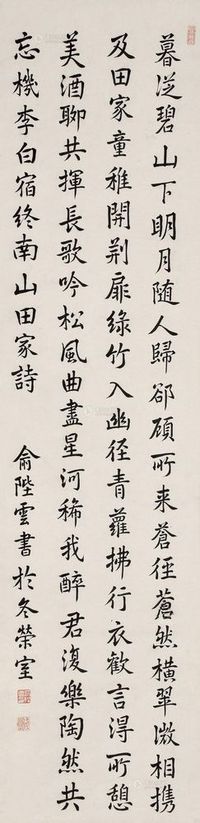 暮從碧山下明月随人歸郤顧所来蒼徑蒼然橫翠微相携
及田家童稚開荆扉綠竹入幽徑青蘿拂行衣歡言得所憩
美酒聊共揮長歌吟松風曲盡星河稀我醉君復樂陶然共
忘機李白宿終南山田家詩 俞陛雲書於冬榮室